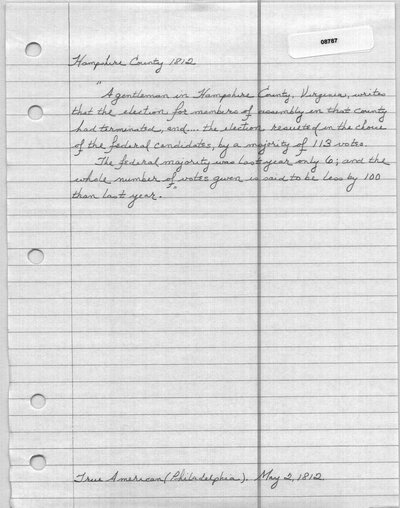 08787
Hampshire County 1812
"A gentleman in Hampshire County, Virginia, writes
that the election for members of assembly in that county
had terminated, and... the election resulted in the choice
of the federal candidates, by a majority of 113 votes.
The federal majority was last year only 6; and the
whole number of votes given is said to be less by 100
than last year."
True American (Philadelphia). May 2, 1812.